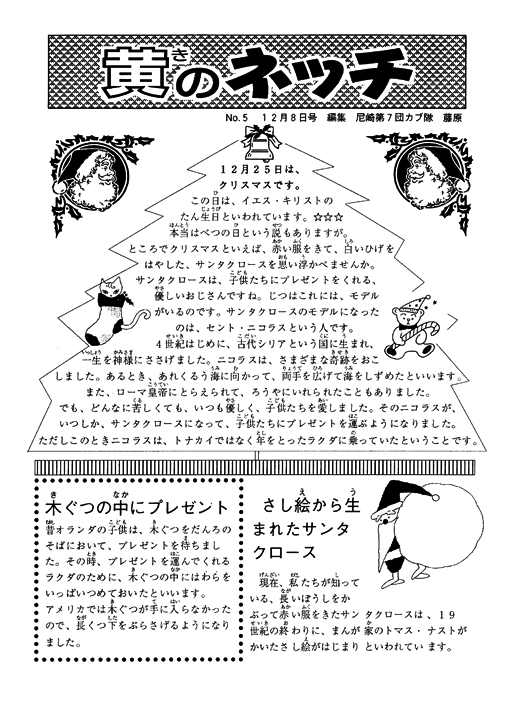 黄のネッチ
No.5 12月8日号 編集 尼崎第7団カブ隊 藤原
12月25日は、
クリスマスです。
この日は、イエス・キリストの
たん生日といわれています。☆☆☆
本当はべつの日という説もありますが。
ところでクリスマスといえば、赤い服をきて、白いひげを
はやした、サンタクロースを思い浮かべませんか。
サンタクロースは、子供たちにプレゼントをくれる、
優しいおじさんですね。じつはこれには、モデル
がいるのです。サンタクロースのモデルになった
のは、セント・ニコラスという人です。
4世紀はじめに、古代シリアという国に生まれ、
一生を神様にささげました。ニコラスは、さまざまな奇跡をおこ
しました。あるとき、あれくるう海に向かって、両手を広げて海をしずめたといいます。
また、ローマ皇帝にとらえられて、ろうやにいれられたこともありました。
でも、どんなに苦しくても、いつも優しく、子供たちを愛しました。そのニコラスが、
いつしか、サンタクロースになって、子供たちにプレゼントを運ぶようになりました。
ただしこのときニコラスは、トナカイではなく年をとったラクダに乗っていたということです。
木ぐつの中にプレゼント
昔オランダの子供は、木ぐつをだんろの
そばにおいて、プレゼントを待ちまし
た。その時、プレゼントを運んでくれる
ラクダのために、木ぐつの中にはわらを
いっぱいつめておいたといいます。
アメリカでは木ぐつが手に入らなかった
ので、長くつ下をぶらさげるようになり
ました。
さし絵から生
まれたサンタ
クロース
現在、私たちが知って
いる、長いぼうしをか
ぶって赤い服をきたサンタクロースは、19
世紀の終わりに、まんが家のトマス・ナストが
かいたさし絵がはじまりといわれています。